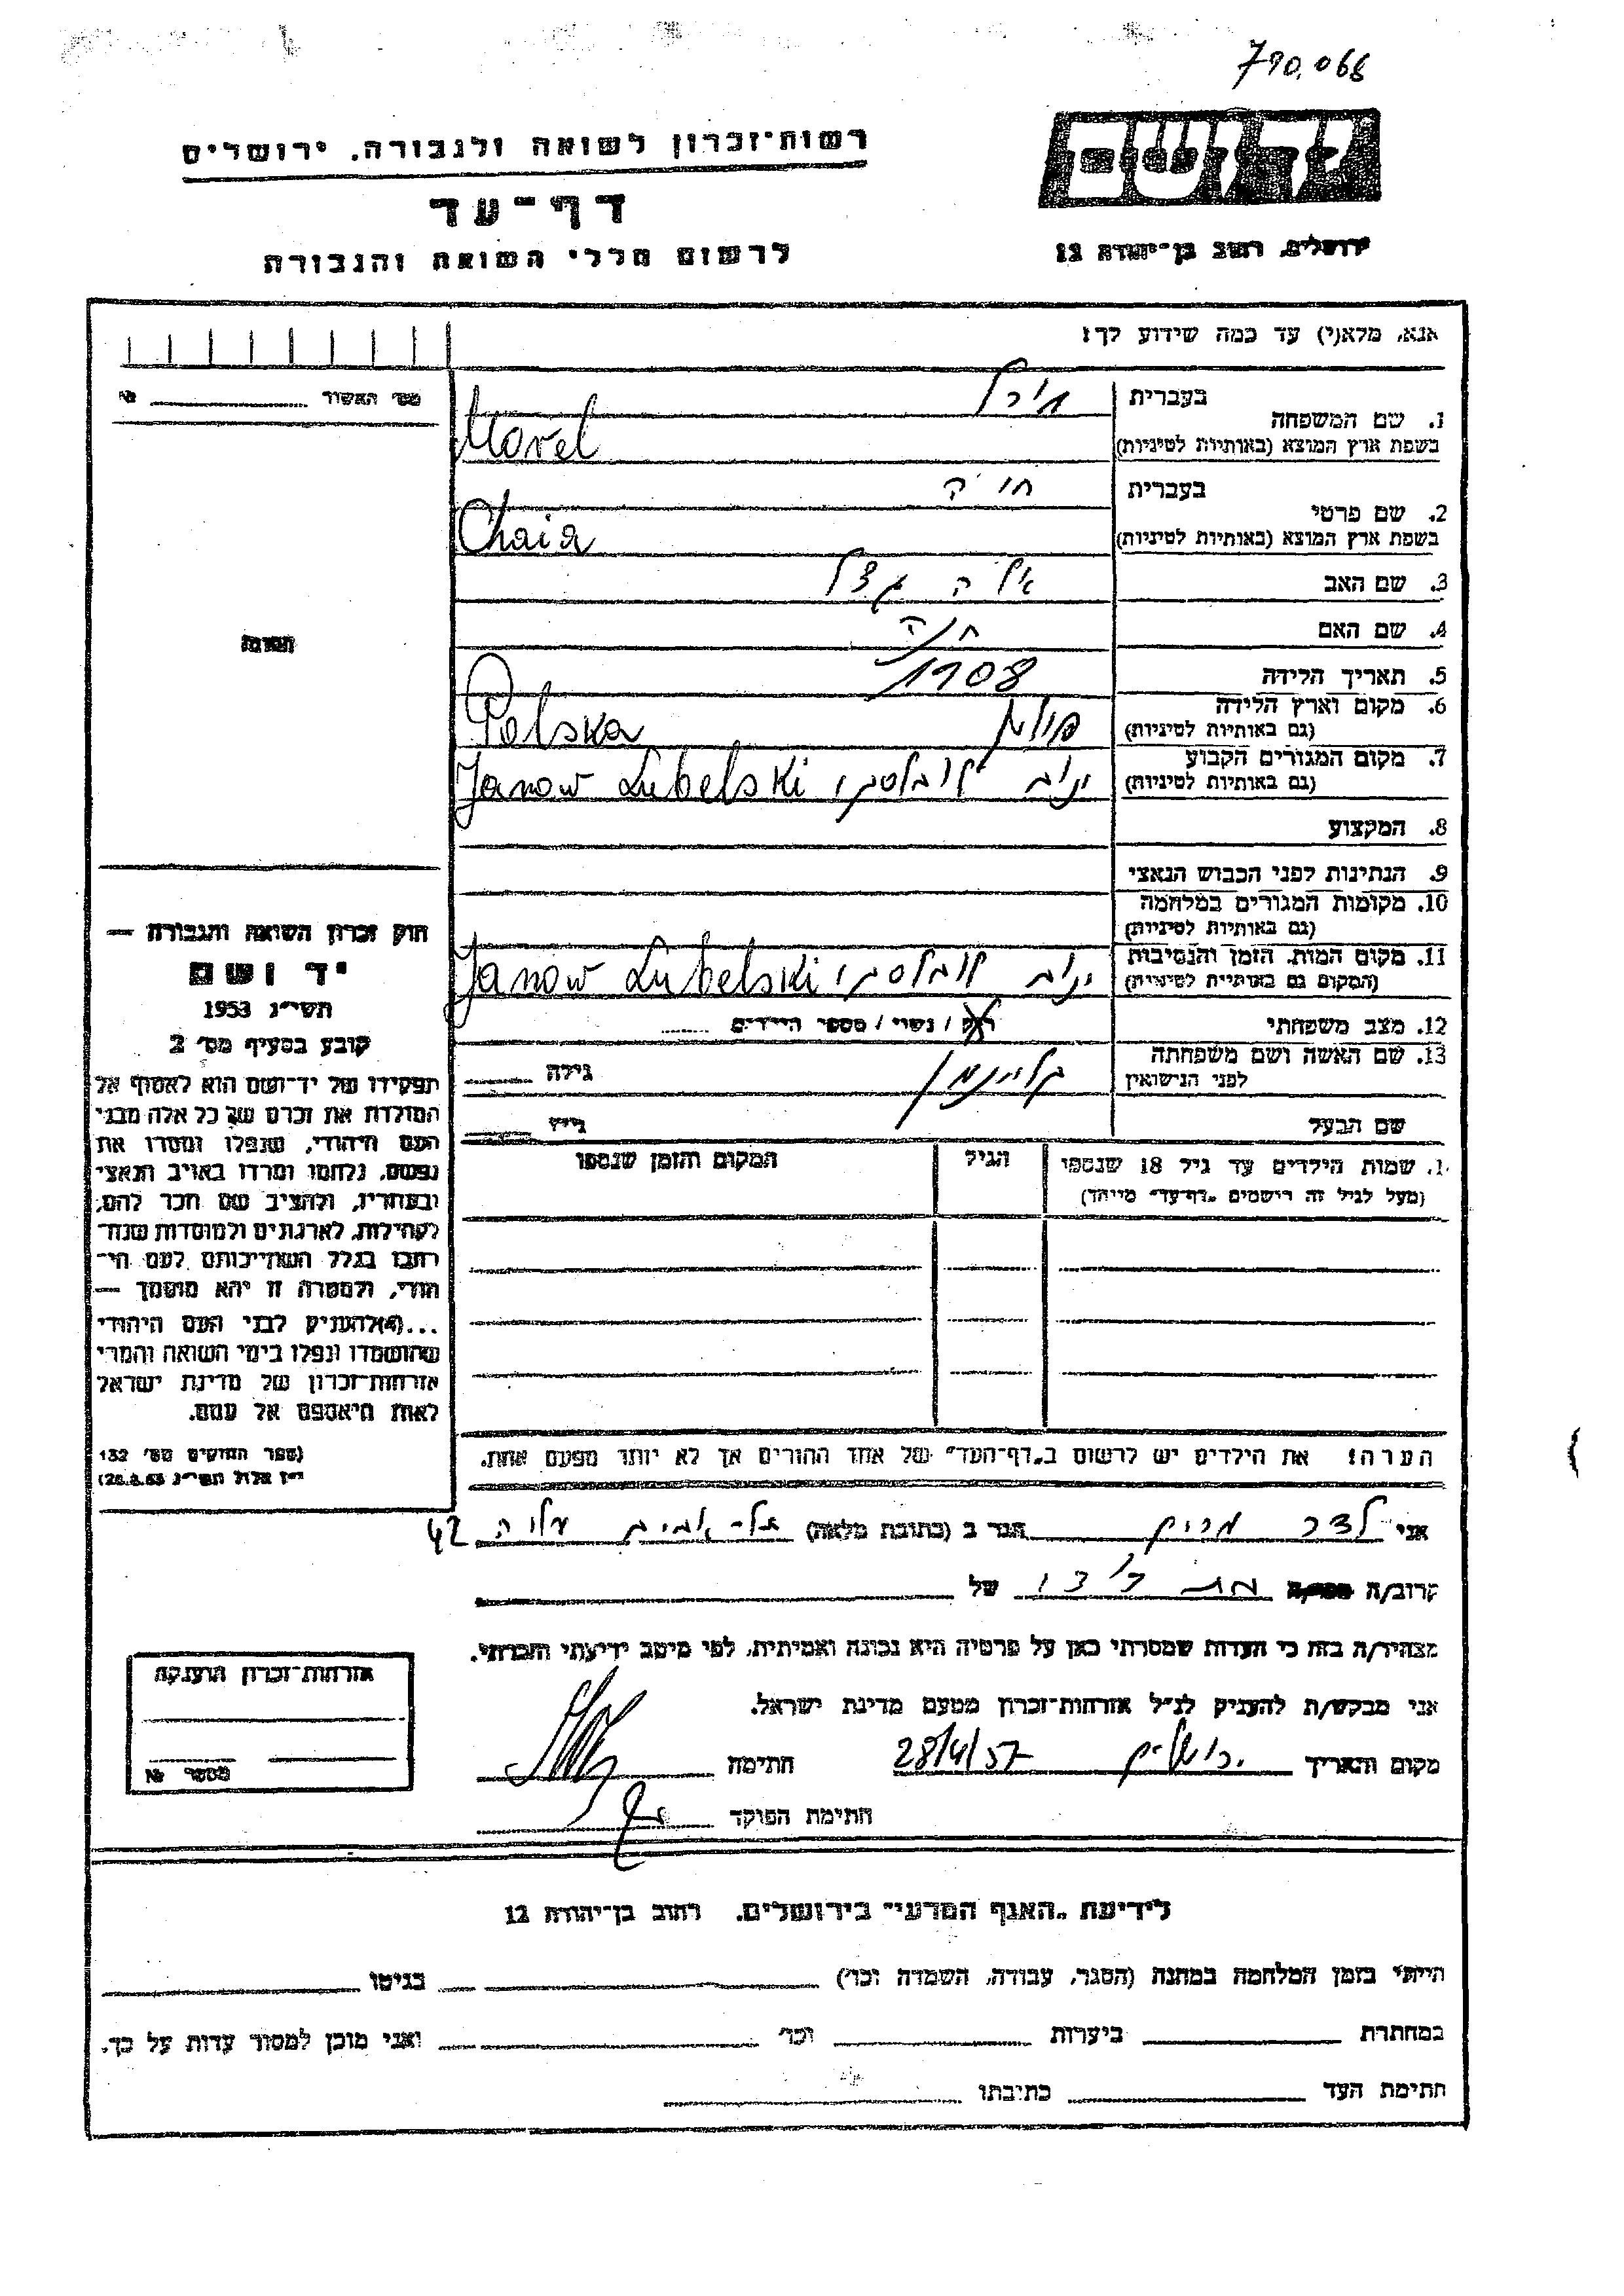 790.068
יד ושם
רשות־זכרון לשואה ולגבורה. ירושלים
דף־עד
לרשום חללי השואה והגבורה
ירושלים, רחוב בן־יהודה 12
אנא, מלא(י) עד כמה שידוע לך:
מס׳ האשור №
בעברית
1. שם המשפחה
בשפת ארץ המוצא (באותיות לטיניות) Morel
בעברית חיה
2. שם פרטי
בשפת ארץ המוצא (באותיות לטיניות) Chaia
3. שם האב
4. שם האם חנה
5. תאריך הלידה 1908
6. מקום וארץ הלידה פולין Polska
(גם באותיות לטיניות)
7. מקום המגורים הקבוע ינוב לובלסקי Janow Lubelski
(גם באותיות לטיניות)
8. המקצוע
9. הנתינות לפני הכבוש הנאצי
10. מקומות המגורים במלחמה
(גם באותיות לטיניות)
11. מקום המות, הזמן והנסיבות ינוב לובלסקי Janow Lubelski
(המקום גם באותיות לטיניות)
12. מצב משפחתי רווק / נשוי / מספר הילדים
13. שם האשה ושם משפחתה קליינמן גילה
לפני הנישואין
שם הבעל גילו
14. שמות הילדים עד גיל 18 שנספו הגיל המקום והזמן שנספו
(מעל לגיל זה רישמים „דף־עד״ מיוחד)
הערה: את הילדים יש לרשום ב„דף־העד״ של אחד ההורים אך לא יותר מפעם אחת.
תמונה
חוק זכרון השואה והגבורה —
יד ושם
תשי״ג 1953
קובע בסעיף מס׳ 2
תפקידו של יד־ושם הוא לאסוף אל
המולדת את זכרם של כל אלה מבני
העם היהודי, שנפלו ומסרו את
נפשם, נלחמו ומרדו באויב הנאצי
ובעוזריו, ולהציב שם וזכר להם,
לקהילות, לארגונים ולמוסדות שנח־
רבו בגלל השתייכותם לעם היה־
הודי, ולמטרה זו יהא מוסמך —
...(4)להעניק לבני העם היהודי
שהושמדו ונפלו בימי השואה והמרי
אזרחות־זכרון של מדינת ישראל
לאות היאספם אל עמם.
(ספר החוקים מס׳ 132
י״ז אלול תשי״ג 28.8.53)
אני לצר מרים הגר ב (כתובת מלאה) תל־אביב עליה 42
קרוב/ה של
מצהיר/ה בזה כי העדות שמסרתי כאן על פרטיה היא נכונה ואמיתית, לפי מיטב ידיעתי והכרתי.
אני מבקש/ת להעניק לנ״ל אזרחות־זכרון מטעם מדינת ישראל.
מקום ותאריך ירושלים 28/4/57 חתימה
חתימת הפוקד
אזרחות־זכרון הוענקה
מספר №
לידיעת „האגף המדעי״ בירושלים. רחוב בן־יהודה 12
הייתי בזמן המלחמה במחנה (הסגר, עבודה, השמדה וכו׳) בגיטו
במחתרת ביערות וכו׳ ואני מוכן למסור עדות על כך.
חתימת העד כתיבתו